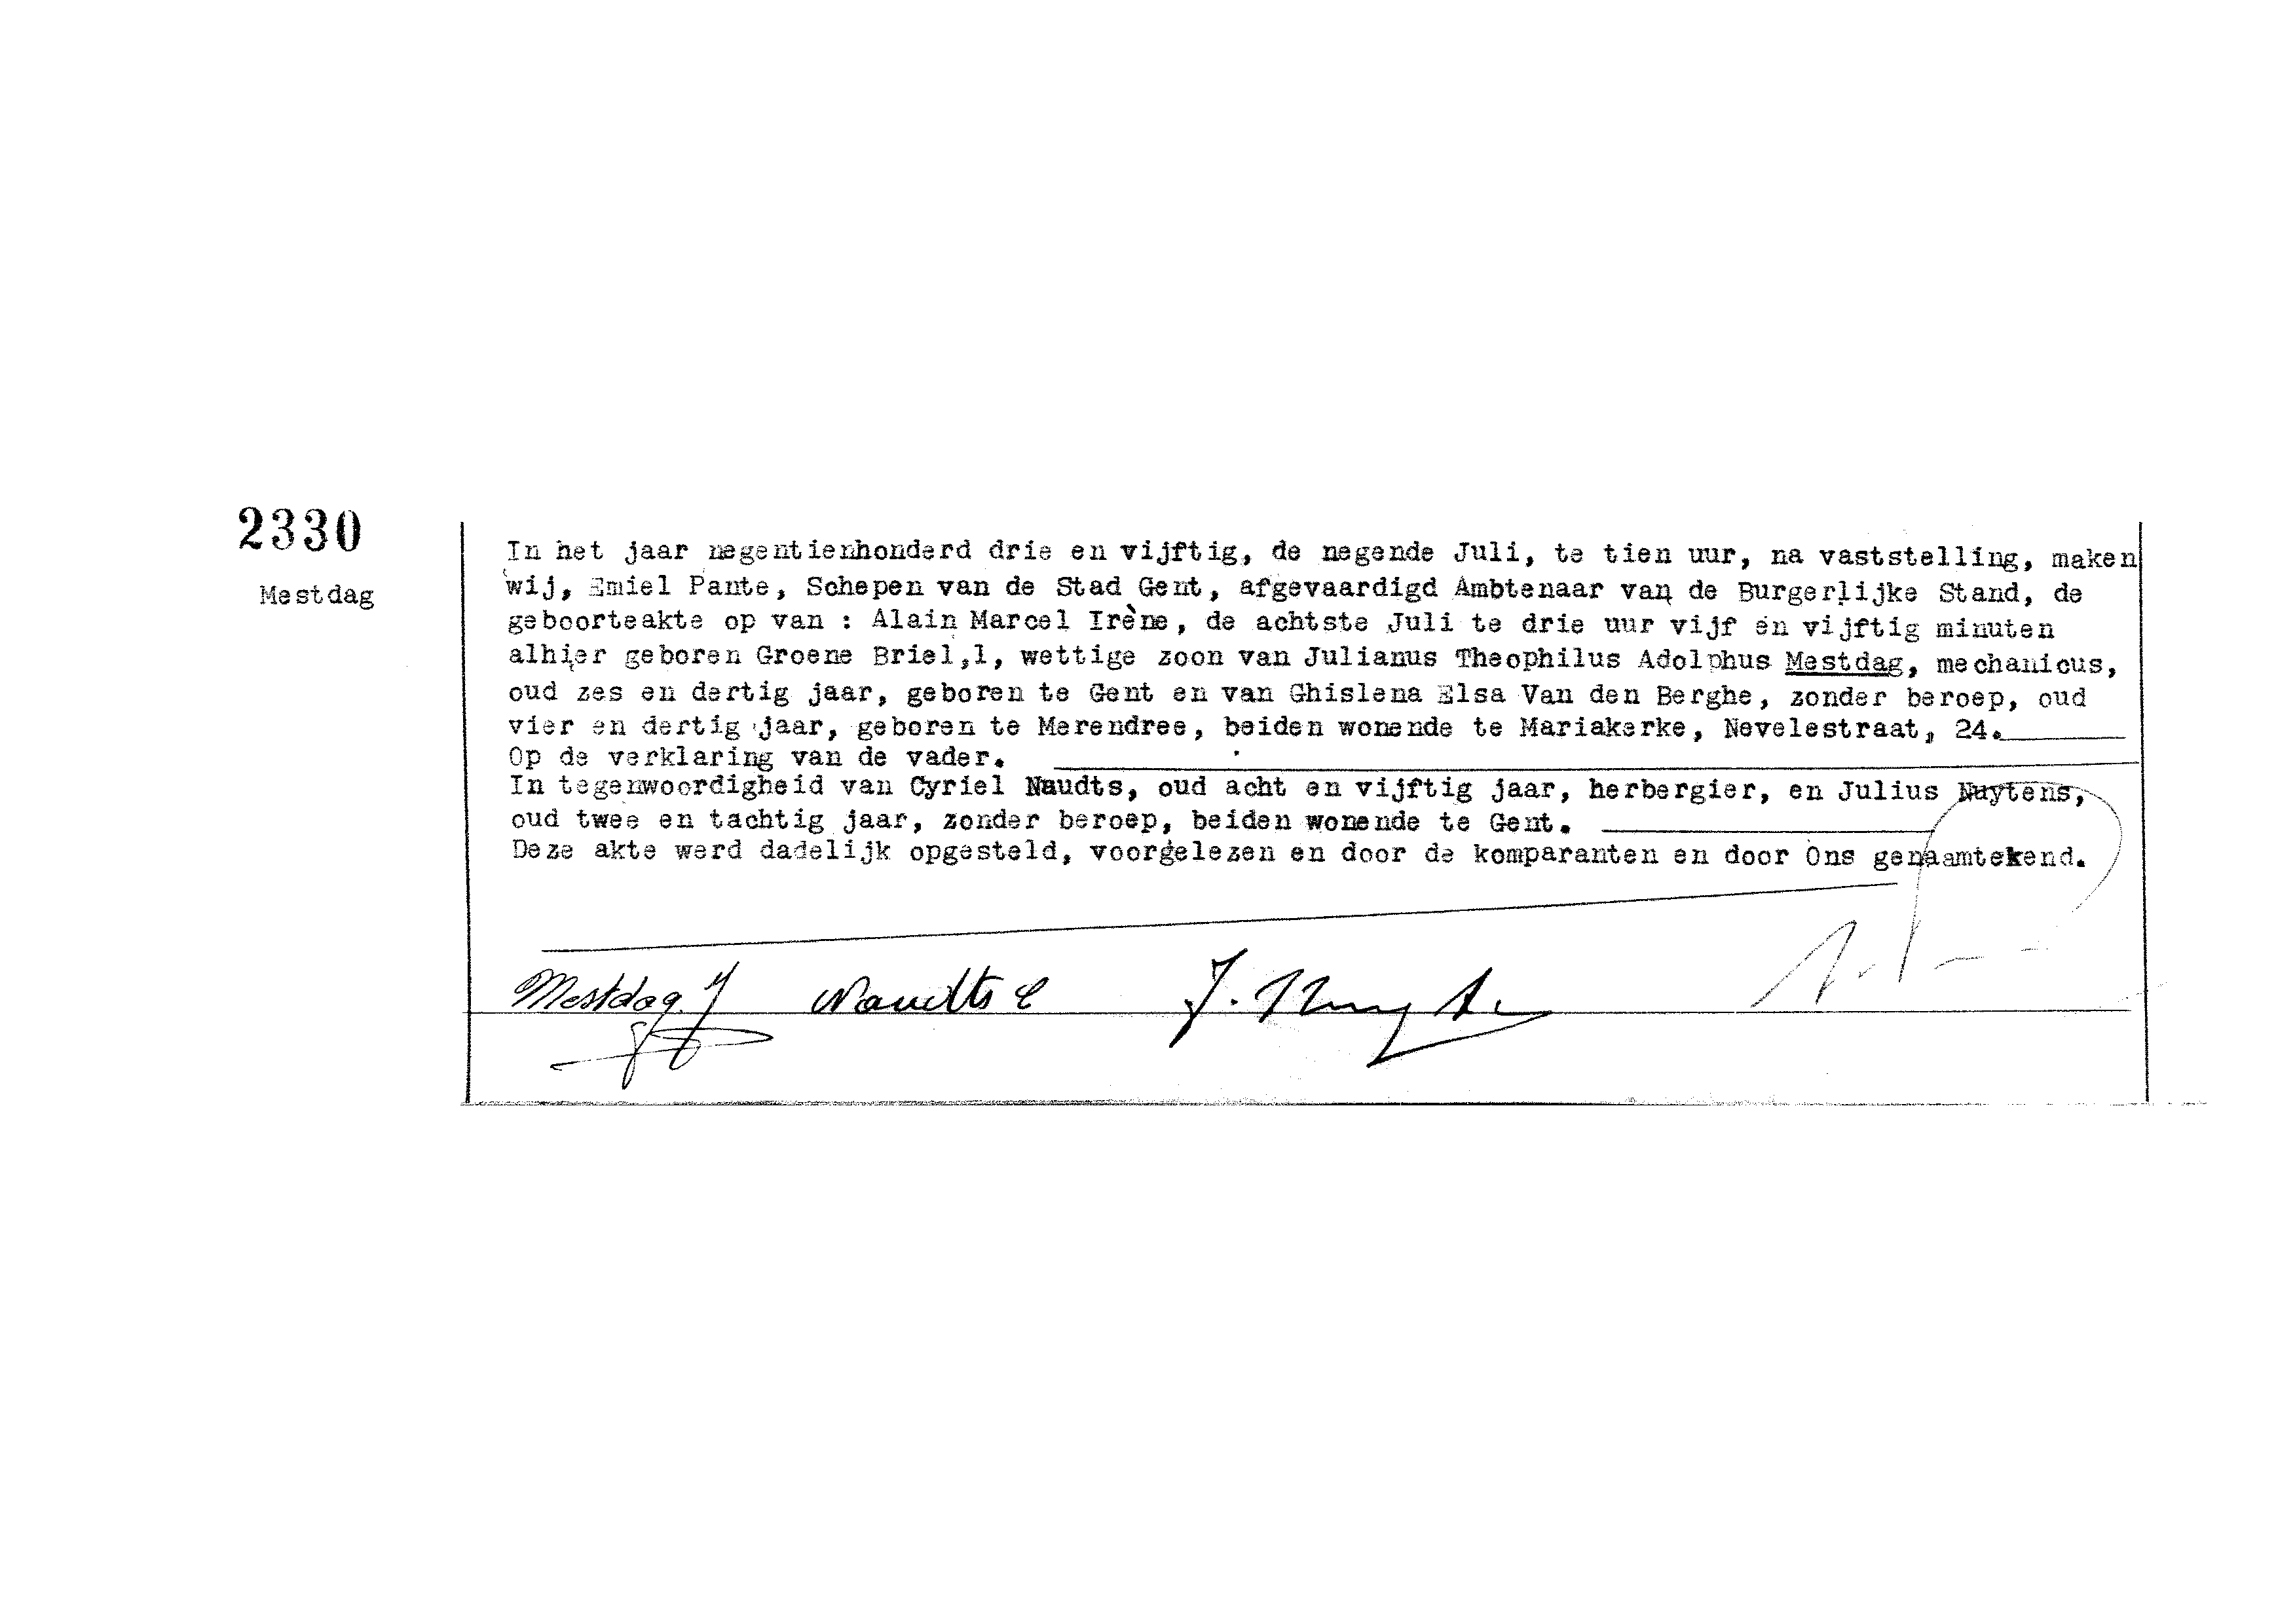 2330
Mestdag
In het jaar negentienhonderd drie en vijftig, de negende Juli, te tien uur, na vaststelling, maken
wij, Emiel Pante, Schepen van de Stad Gent, afgevaardigd Ambtenaar van de Burgerlijke Stand, de
geboorteakte op van : Alain Marcel Irène, de achtste Juli te drie uur vijf en vijftig minuten
alhier geboren Groene Briel,1, wettige zoon van Julianus Theophilus Adolphus Mestdag, mechanicus,
oud zes en dertig jaar, geboren te Gent en van Ghislena Elsa Van den Berghe, zonder beroep, oud
vier en dertig jaar, geboren te Merendree, beiden wonende te Mariakerke, Nevelestraat, 24.
Op de verklaring van de vader.
In tegenwoordigheid van Cyriel Naudts, oud acht en vijftig jaar, herbergier, en Julius Nuytens,
oud twee en tachtig jaar, zonder beroep, beiden wonende te Gent.
Deze akte werd dadelijk opgesteld, voorgelezen en door de komparanten en door Ons genaamtekend.
Mestdag. J Naudts C J.